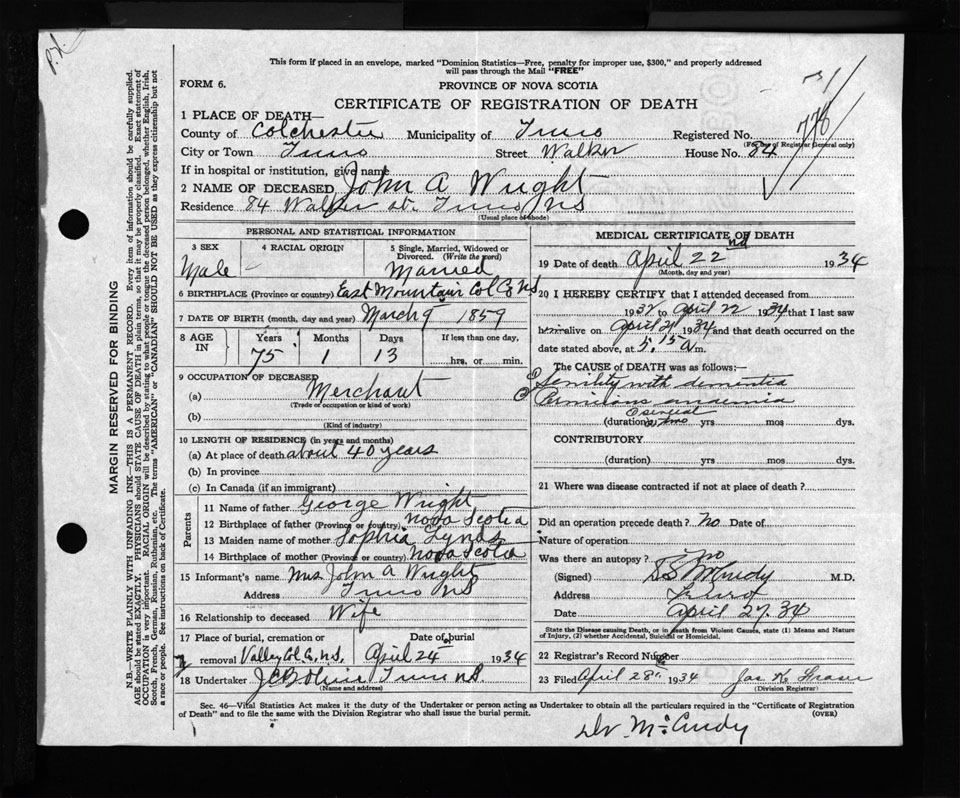 This form if placed in an envelope, marked "Dominion Statistics—Free, penalty for improper use, $300," and properly addressed
will pass through the Mail "FREE"
FORM 6.
PROVINCE OF NOVA SCOTIA
CERTIFICATE OF REGISTRATION OF DEATH
778
1 PLACE OF DEATH—
County of Colchester Municipality of Truro Registered No.
(For use of Registrar General only)
City or Town Truro Street Walker House No. 84
If in hospital or institution, give name
2 NAME OF DECEASED John A Wright
Residence 84 Walker st. Truro NS
(Usual place of abode)
PERSONAL AND STATISTICAL INFORMATION
3 SEX 4 RACIAL ORIGIN 5 Single, Married, Widowed or Divorced. (Write the word)
Male – Married
6 BIRTHPLACE (Province or country) East Mountain Col Co NS
7 DATE OF BIRTH (month, day and year) March 9 1859
8 AGE IN Years Months Days If less than one day,
75 1 13 hrs. or min.
9 OCCUPATION OF DECEASED
(a) Merchant
(Trade or occupation or kind of work)
(b)
(Kind of industry)
10 LENGTH OF RESIDENCE (in years and months)
(a) At place of death about 40 years
(b) In province
(c) In Canada (if an immigrant)
Parents
11 Name of father George Wright
12 Birthplace of father (Province or country) Nova Scotia
13 Maiden name of mother Sophia Lynds
14 Birthplace of mother (Province or country) Nova Scotia
15 Informant's name Mrs John A Wright
Address Truro NS
16 Relationship to deceased Wife
17 Place of burial, cremation or Date of burial
removal Valley Col Co, N.S. April 24 1934
18 Undertaker Truro NS.
(Name and address)
MEDICAL CERTIFICATE OF DEATH
19 Date of death April 22nd 1934
(Month, day and year)
20 I HEREBY CERTIFY that I attended deceased from
to April 22 1934 that I last saw
him alive on April 21 1934 and that death occurred on
date stated above, at 5.15 a m.
The CAUSE of DEATH was as follows:—
Senility with dementia
Pernicious anaemia
(duration) yrs mos dys.
CONTRIBUTORY
(duration) yrs mos dys.
21 Where was disease contracted if not at place of death?
Did an operation precede death? No Date of
Nature of operation
Was there an autopsy? No
(Signed) McCurdy M.D.
Address Truro
Date April 27. 34
State the Disease causing Death, or in death from Violent Causes, state (1) Means and Nature
of Injury, (2) whether Accidental, Suicidal or Homicidal.
22 Registrar's Record Number
23 Filed April 28 1934 Jas K Fraser
(Division Registrar)
Sec. 46—Vital Statistics Act makes it the duty of the Undertaker or person acting as Undertaker to obtain all the particulars required in the "Certificate of Registration
of Death" and to file the same with the Division Registrar who shall issue the burial permit. (OVER)
Dr McCurdy
MARGIN RESERVED FOR BINDING
N.B.—WRITE PLAINLY WITH UNFADING INK—THIS IS A PERMANENT RECORD. Every item of information should be carefully supplied.
AGE should be stated EXACTLY. PHYSICIANS should STATE CAUSE OF DEATH in plain terms, so that it may be properly classified. Exact statement of
OCCUPATION is very important. RACIAL ORIGIN will be described by stating to what people or tongue the deceased person belonged, whether English, Irish,
Scotch, French, German, Russian, Ruthenian, etc. The terms "AMERICAN" or "CANADIAN" SHOULD NOT BE USED as they express citizenship but not
a race or people. See instructions on back of Certificate.